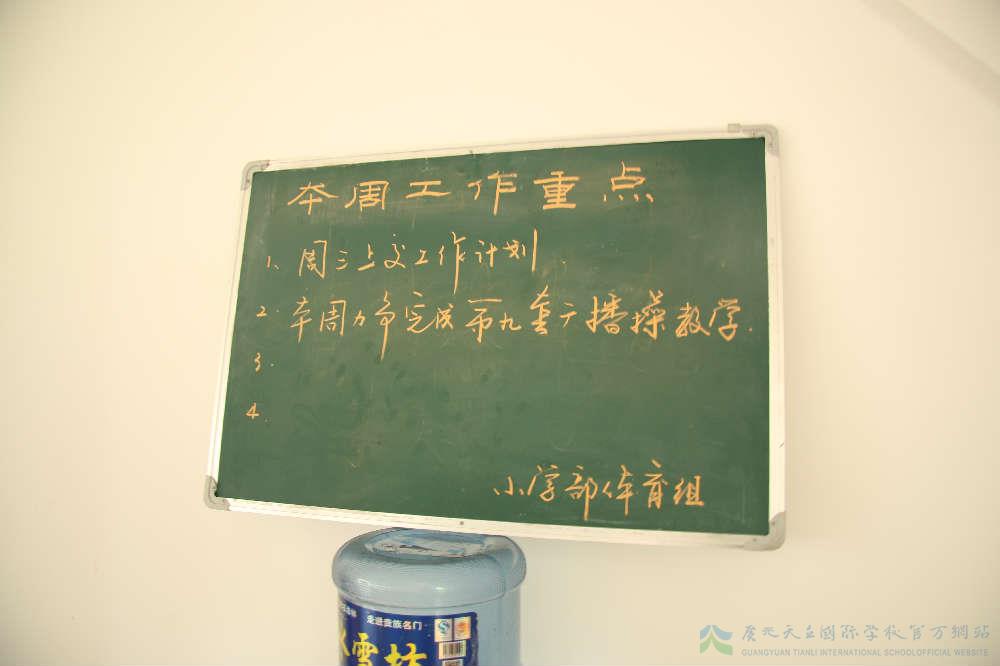 本周工作重点
1、周三上交工作计划.
2.本周力争完成第九套广播操教学.
3.
4.
小学部体育组
走进贵族名门
雪坊
广元天立国际学校官方網站
GUANGYUAN TIANLI INTERNATIONAL SCHOOLOFFICIAL WEBSITE